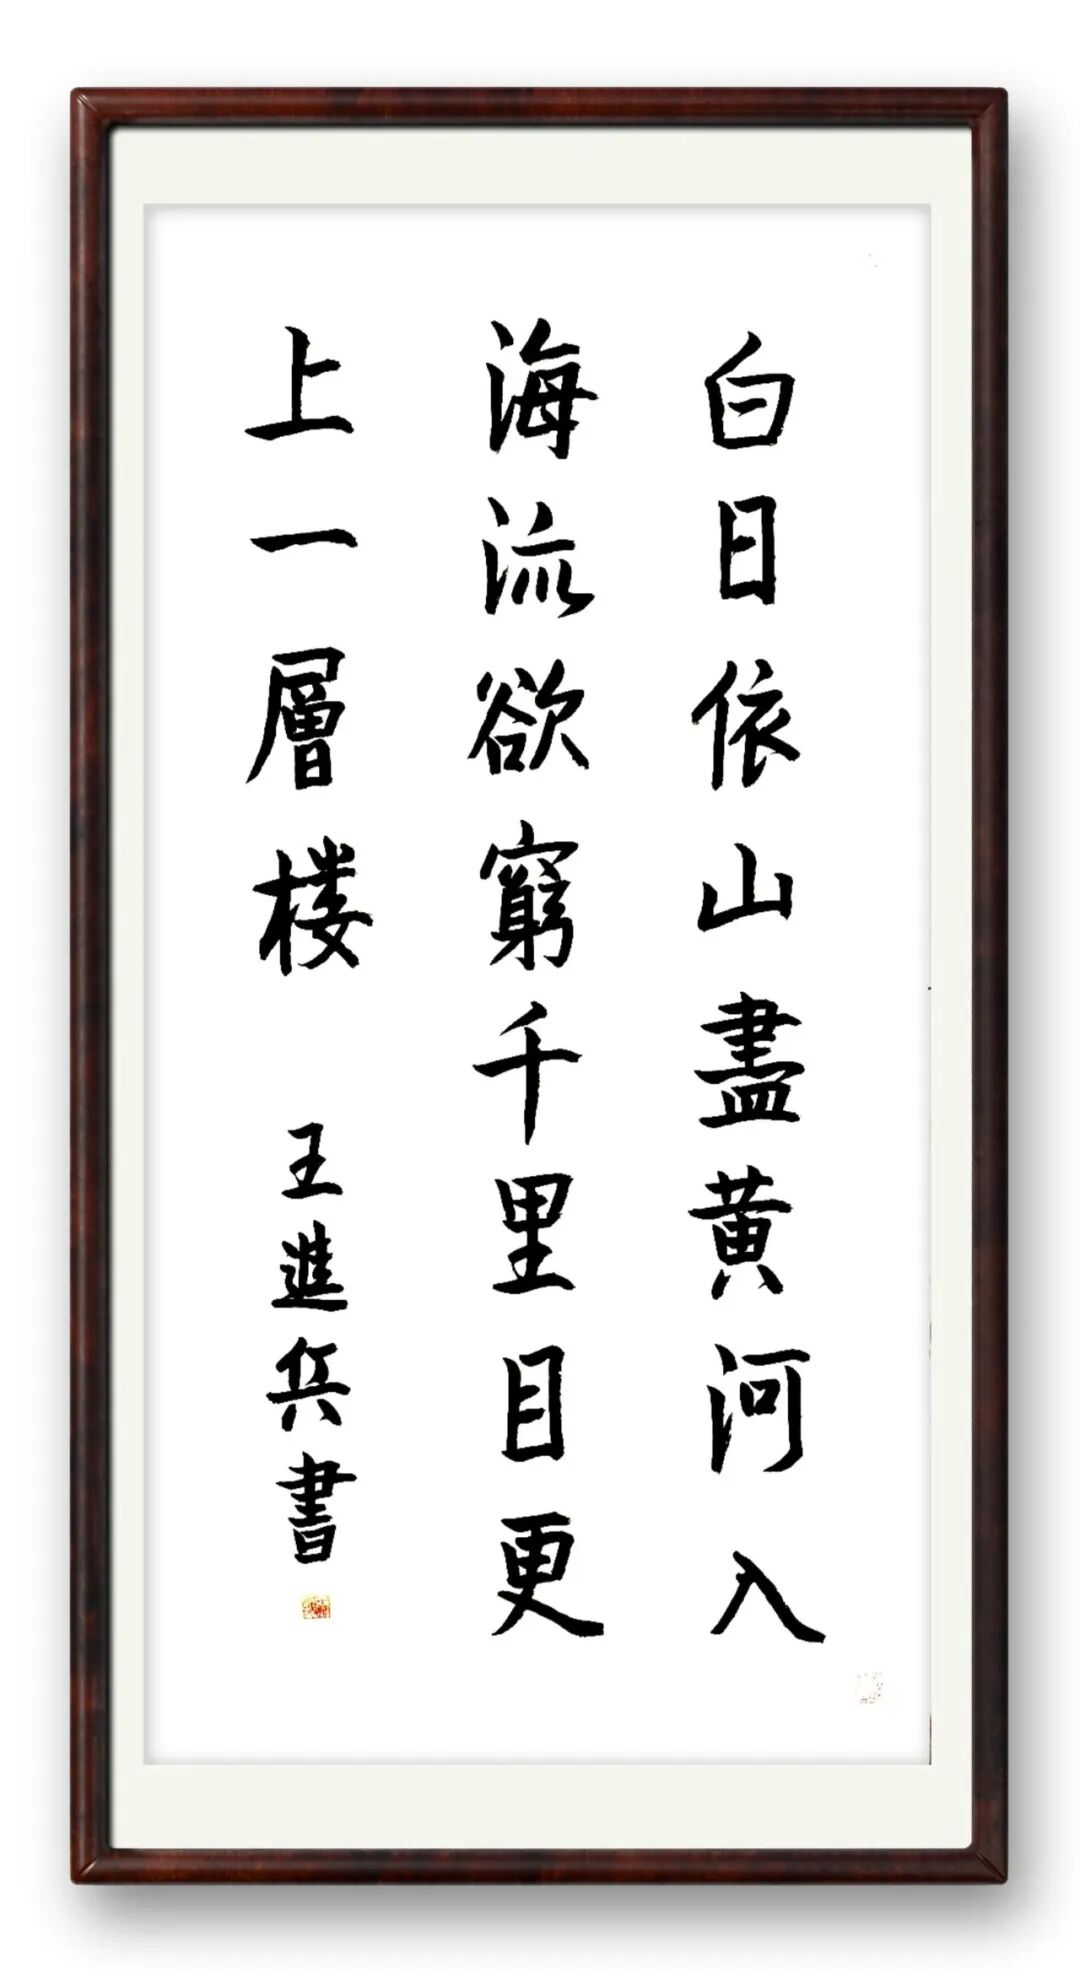 白日依山盡黄河入
海流欲窮千里目更
上一層楼
王進兵書